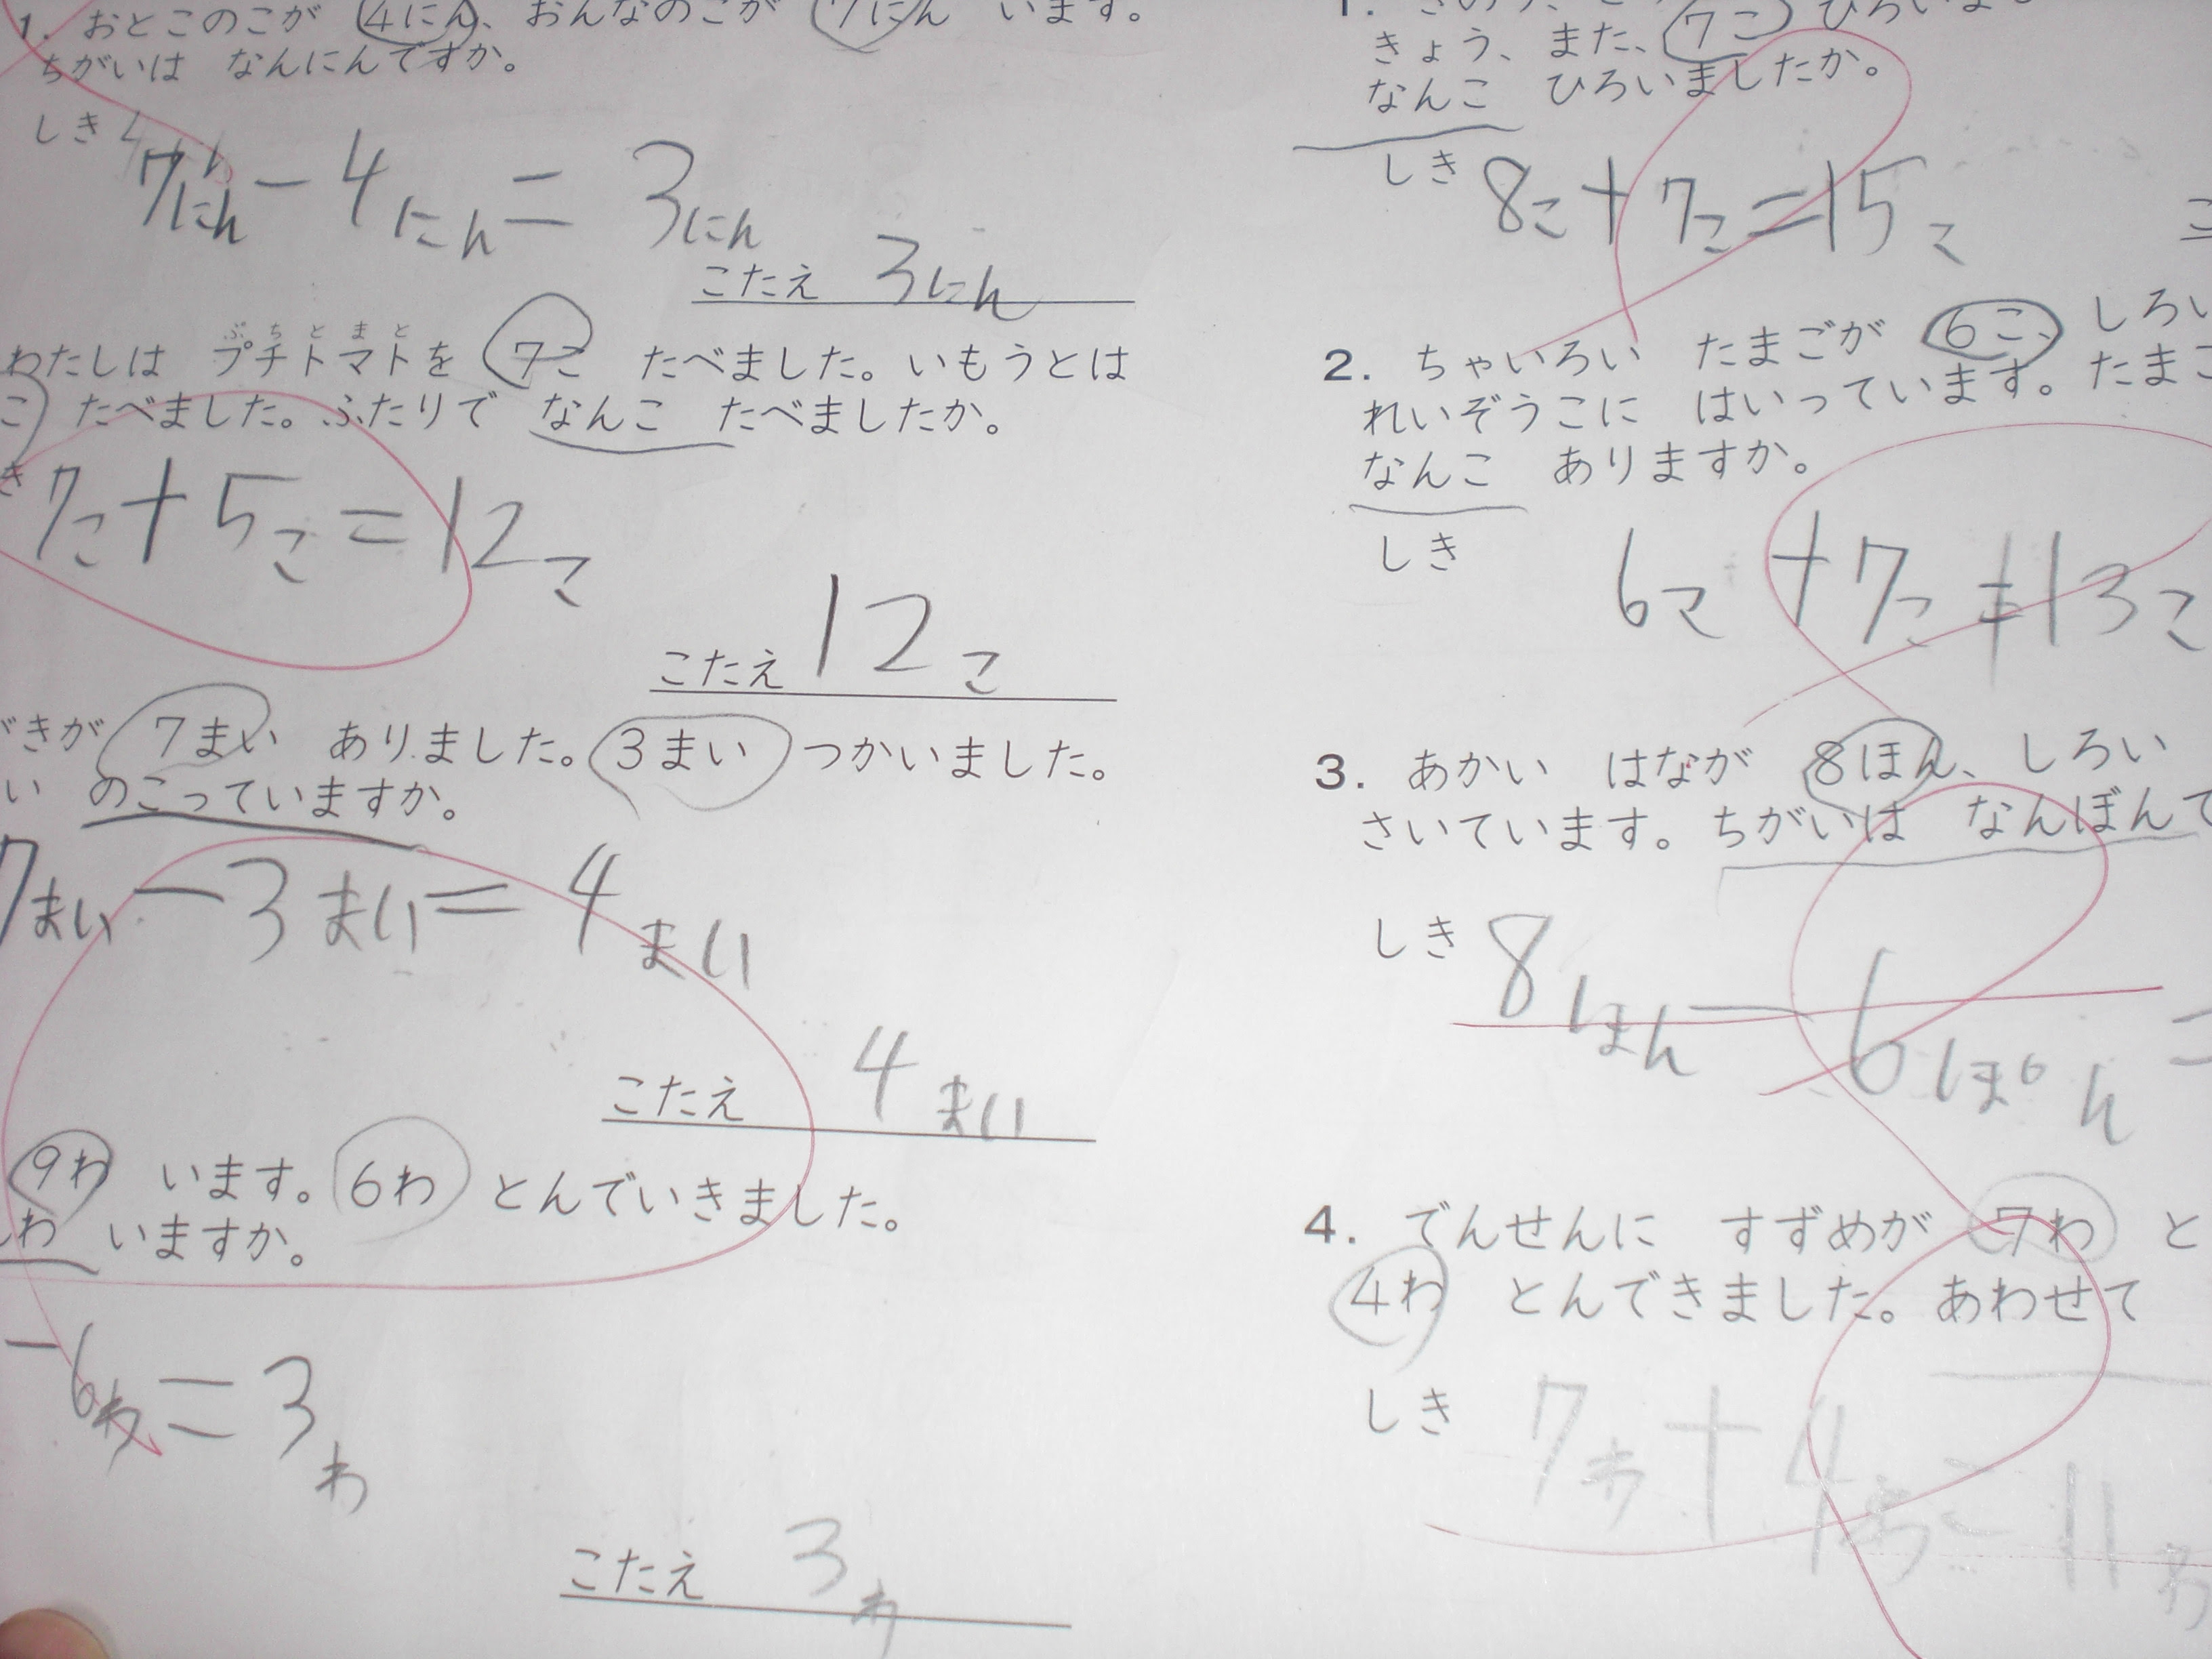 1. おとこのこが 4にん、おんなのこが 7にん います。
ちがいは なんにんですか。
しき 7にん－4にん＝3にん
こたえ 3にん
ぷちとまと
わたしは プチトマトを 7こ たべました。いもうとは
こ たべました。ふたりで なんこ たべましたか。
き 7こ＋5こ＝12こ
こたえ 12こ
きが 7まい ありました。3まい つかいました。
い のこっていますか。
7まい－3まい＝4まい
こたえ 4まい
9わ います。6わ とんでいきました。
わ いますか。
－6わ＝3わ
こたえ 3わ
1.
7こ ひろいま
きょう、また、
なんこ ひろいましたか。
しき 8こ＋7こ＝15こ
2. ちゃいろい たまごが 6こ、しろい
れいぞうこに はいっています。たまご
なんこ ありますか。
しき 6こ＋7こ＝13こ
3. あかい はなが 8ほん、しろい
さいています。ちがいは なんぼんで
しき 8ほん－6ぽん＝
4. でんせんに すずめが 7わ と
4わ とんできました。あわせて
しき 7わ＋4わ＝11わ